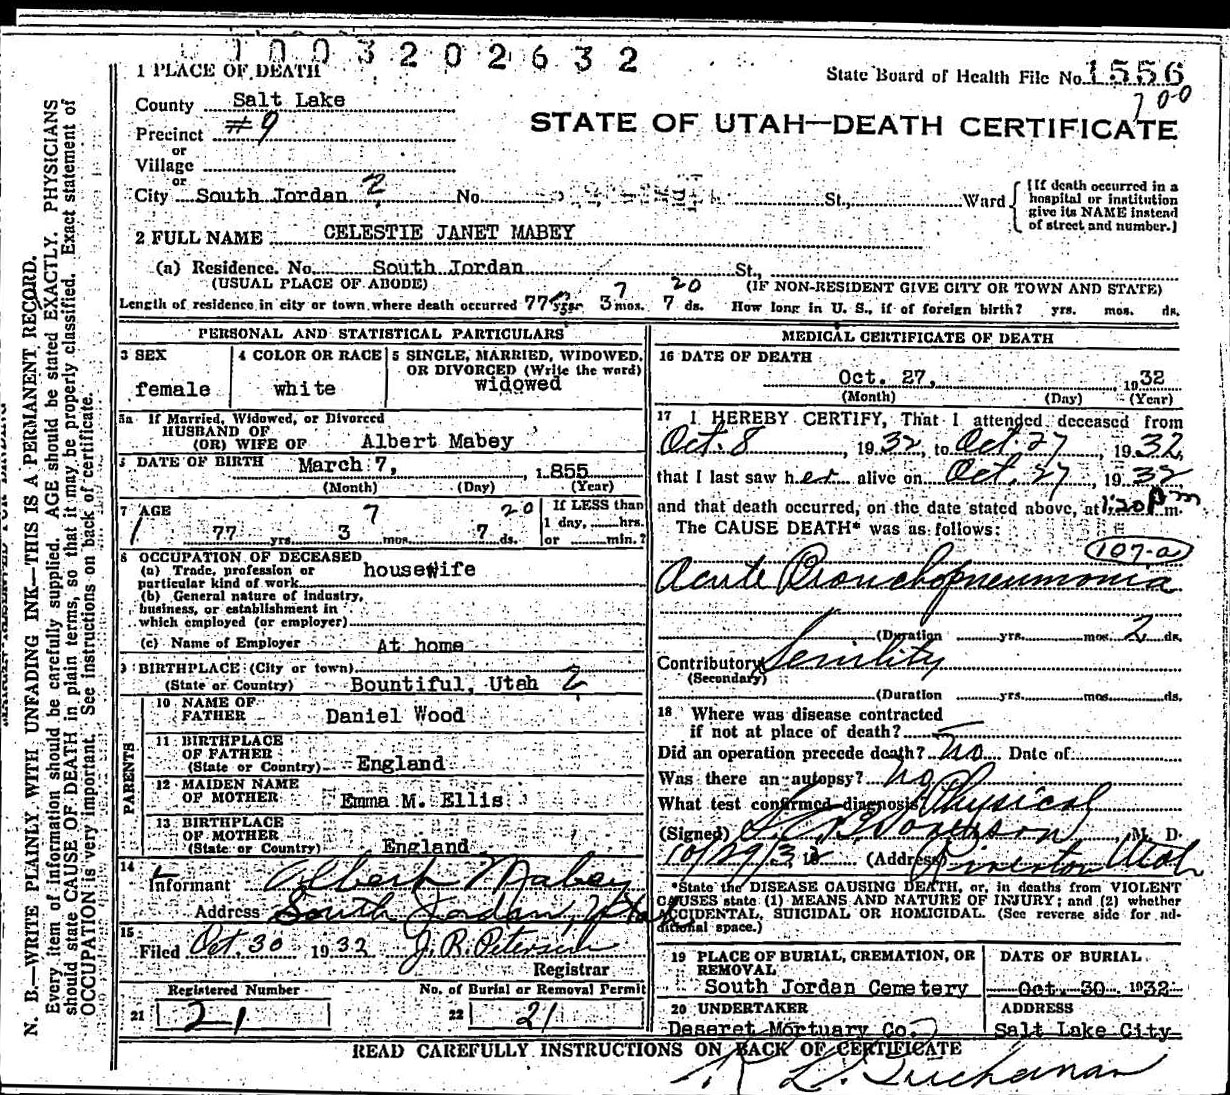 1003202632
1 PLACE OF DEATH
State Board of Health File No. 1556
County Salt Lake
200
Precinct #9
STATE OF UTAH—DEATH CERTIFICATE
or
Village
or
City South Jordan 2 No. St., Ward
[If death occurred in a
hospital or institution
give its NAME instead
of street and number.]
2 FULL NAME CELESTIE JANET MABEY
(a) Residence. No. South Jordan St.,
(USUAL PLACE OF ABODE) (IF NON-RESIDENT GIVE CITY OR TOWN AND STATE)
7 20
Length of residence in city or town where death occurred 77 yrs. 3 mos. 7 ds. How long in U. S., if of foreign birth? yrs. mos. ds.
PERSONAL AND STATISTICAL PARTICULARS
3 SEX
female
4 COLOR OR RACE
white
5 SINGLE, MARRIED, WIDOWED,
OR DIVORCED (Write the word)
widowed
5a If Married, Widowed, or Divorced
HUSBAND OF
(OR) WIFE OF Albert Mabey
DATE OF BIRTH March 7, 1855
(Month) (Day) (Year)
7 AGE 7 20
77 yrs. 3 mos. 7 ds.
If LESS than
1 day, hrs.
or min.?
8 OCCUPATION OF DECEASED
(a) Trade, profession or
particular kind of work housewife
(b) General nature of industry,
business, or establishment in
which employed (or employer)
(c) Name of Employer At home
9 BIRTHPLACE (City or town)
(State or Country) Bountiful, Utah 2
PARENTS
10 NAME OF
FATHER Daniel Wood
11 BIRTHPLACE
OF FATHER
(State or Country) England
12 MAIDEN NAME
OF MOTHER Emma M. Ellis
13 BIRTHPLACE
OF MOTHER
(State or Country) England
14
Informant Albert Mabey
Address South Jordan, Utah
15
Filed Oct. 30 1932 J. R. Peterson
Registrar
Registered Number
21 21
No. of Burial or Removal Permit
22 21
MEDICAL CERTIFICATE OF DEATH
16 DATE OF DEATH
Oct. 27, 1932
(Month) (Day) (Year)
17 I HEREBY CERTIFY, That I attended deceased from
Oct. 8, 1932, to Oct 27, 1932,
that I last saw her alive on Oct. 27, 1932
and that death occurred, on the date stated above, at 1:20 P m.
The CAUSE DEATH* was as follows:
107-a
Acute Bronchopneumonia
(Duration yrs. mos. 2 ds.
Contributory Senility
(Secondary)
(Duration yrs. mos. ds.
18 Where was disease contracted
if not at place of death?
Did an operation precede death? no Date of
Was there an autopsy? no
What test confirmed diagnosis Physical
(Signed) M. D.
10/29/32 19 (Address) Riverton Utah
*State the DISEASE CAUSING DEATH, or, in deaths from VIOLENT
CAUSES state (1) MEANS AND NATURE OF INJURY; and (2) whether
ACCIDENTAL, SUICIDAL OR HOMICIDAL. (See reverse side for ad-
ditional space.)
19 PLACE OF BURIAL, CREMATION, OR
REMOVAL
South Jordan Cemetery
DATE OF BURIAL
Oct. 30 1932
20 UNDERTAKER
Deseret Mortuary Co.
ADDRESS
Salt Lake City
READ CAREFULLY INSTRUCTIONS ON BACK OF CERTIFICATE
Buchanan
N. B.—WRITE PLAINLY, WITH UNFADING INK—THIS IS A PERMANENT RECORD.
Every item of information should be carefully supplied. AGE should be stated EXACTLY. PHYSICIANS
should state CAUSE OF DEATH in plain terms, so that it may be properly classified. Exact statement of
OCCUPATION is very important. See instructions on back of certificate.